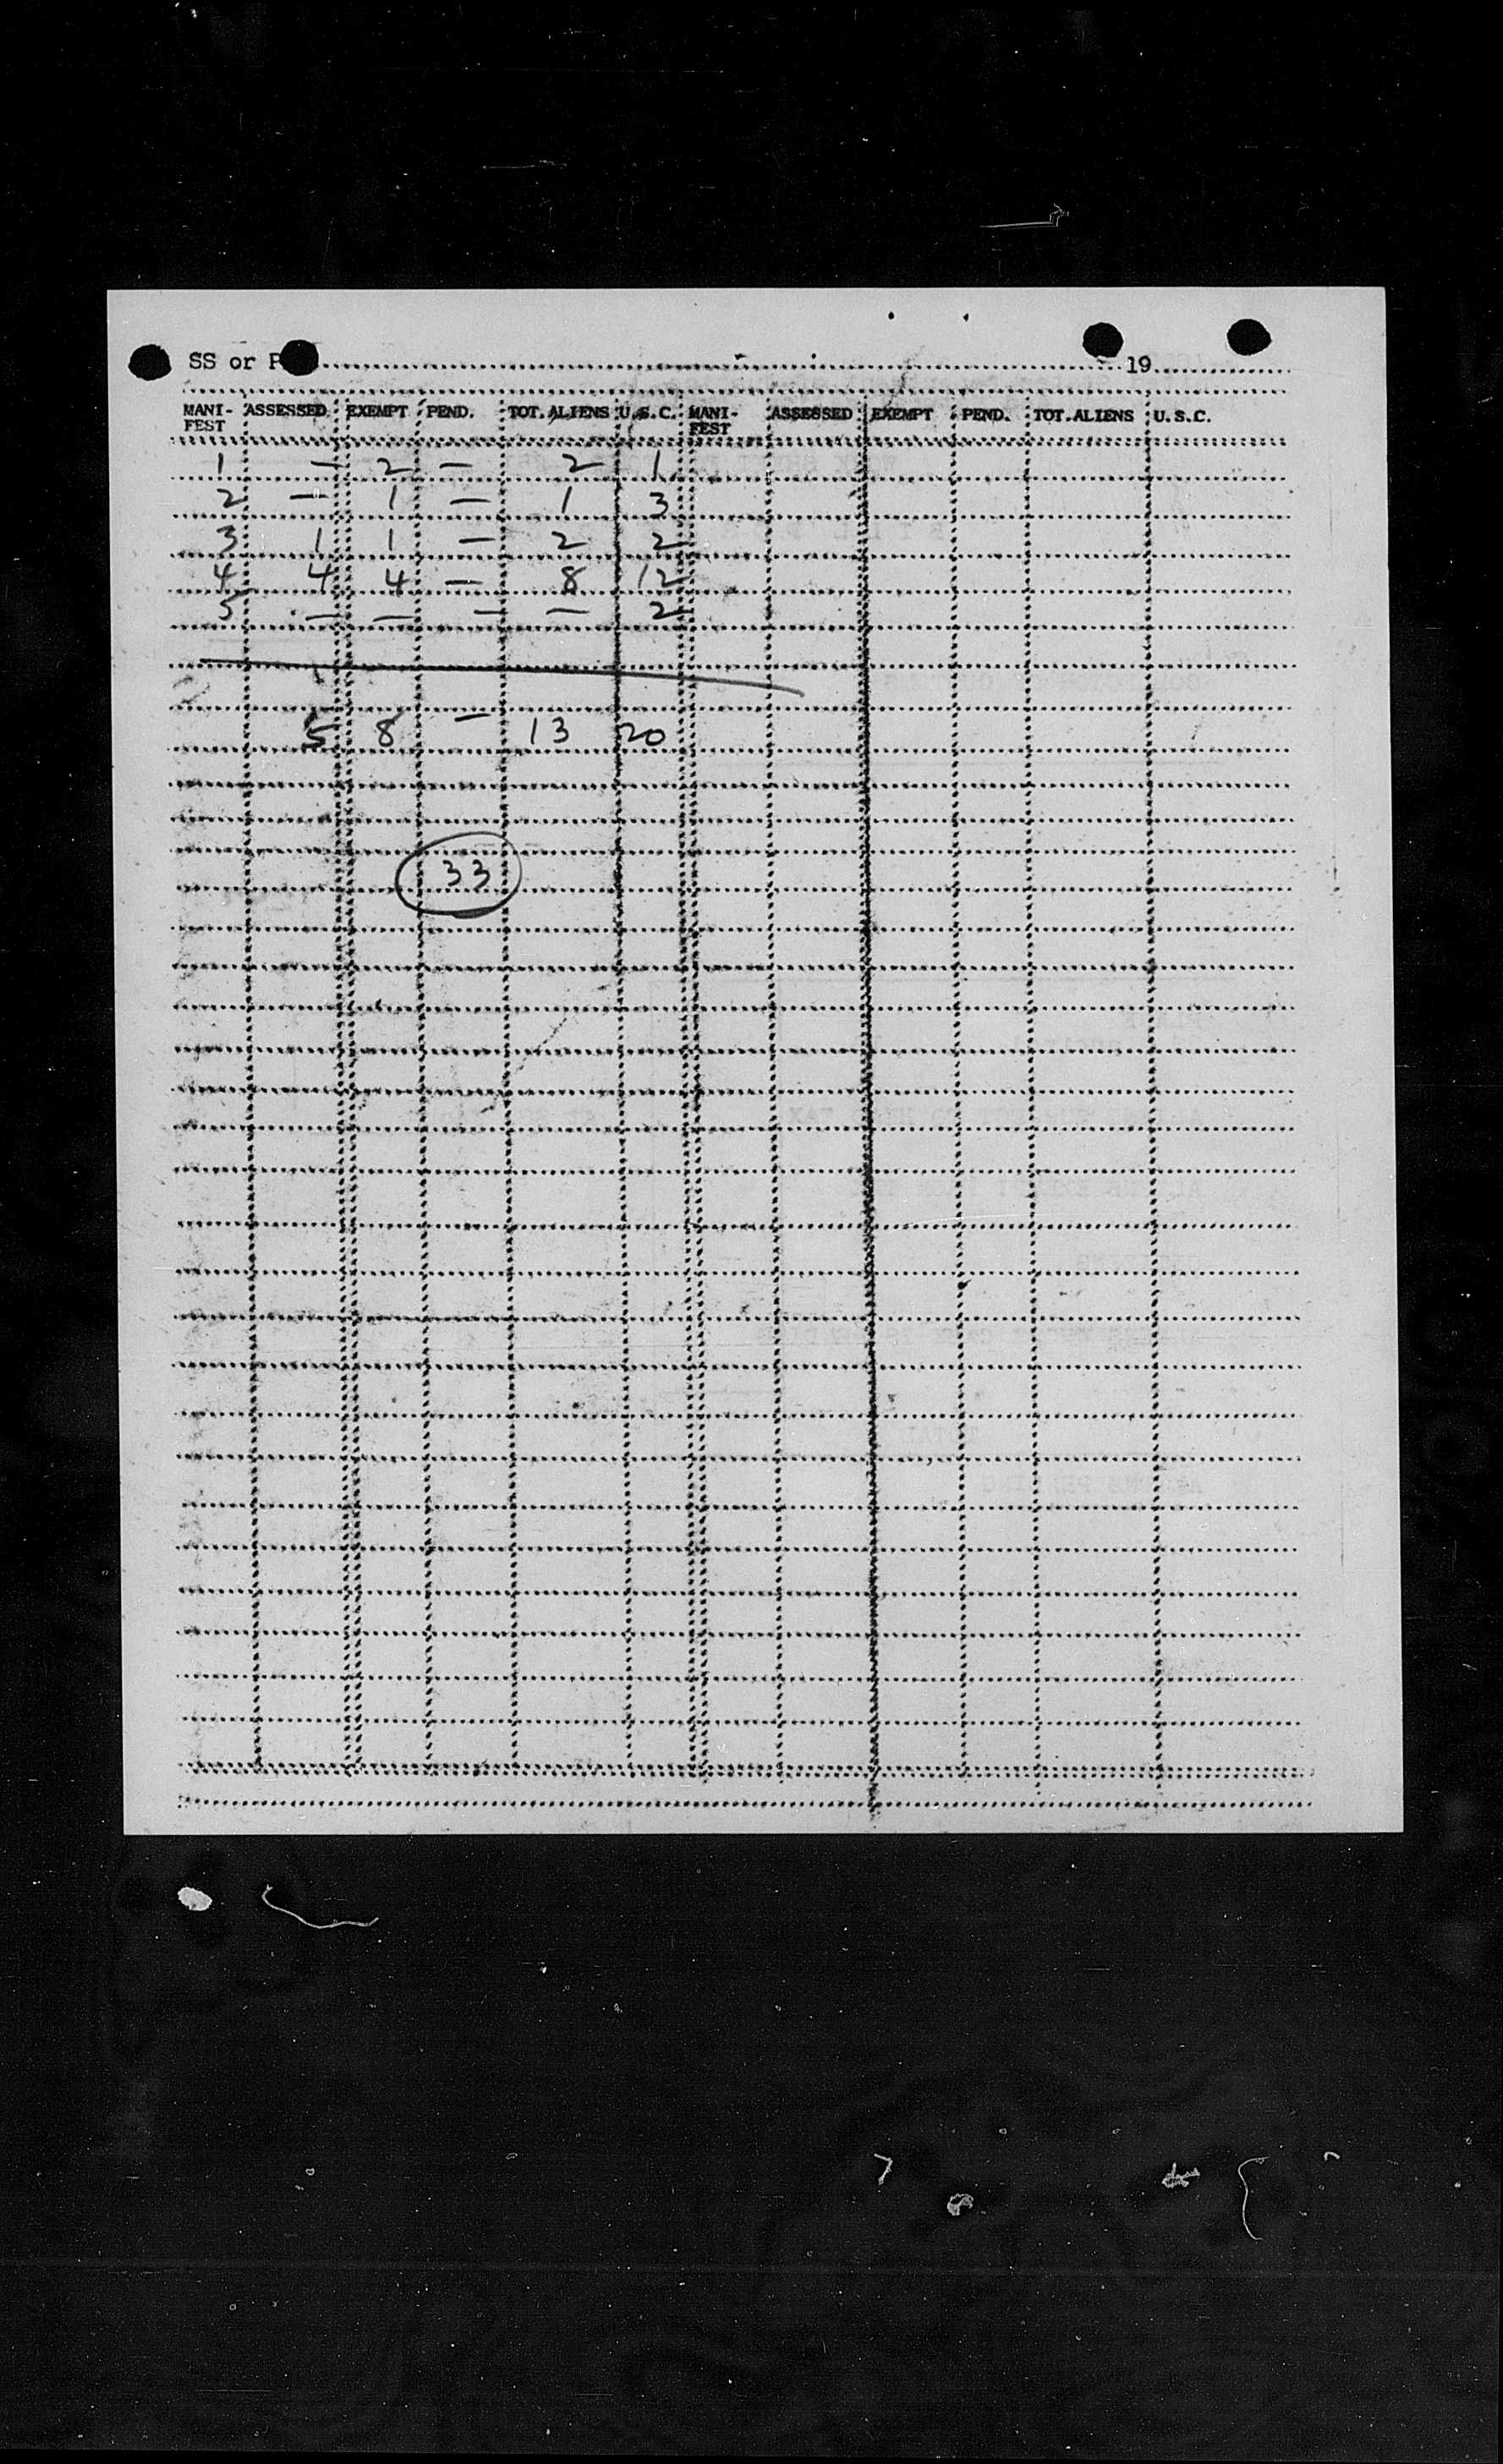 SS or P 19
MANI-FEST ASSESSED EXEMPT PEND. TOT. ALIENS U.S.C. MANI-FEST ASSESSED EXEMPT PEND. TOT. ALIENS U.S.C.
1 — 2 — 2 1
2 — 1 — 1 3
3 1 1 — 2 2
4 4 4 — 8 12
5 — — — — 2
5 8 — 13 20
33